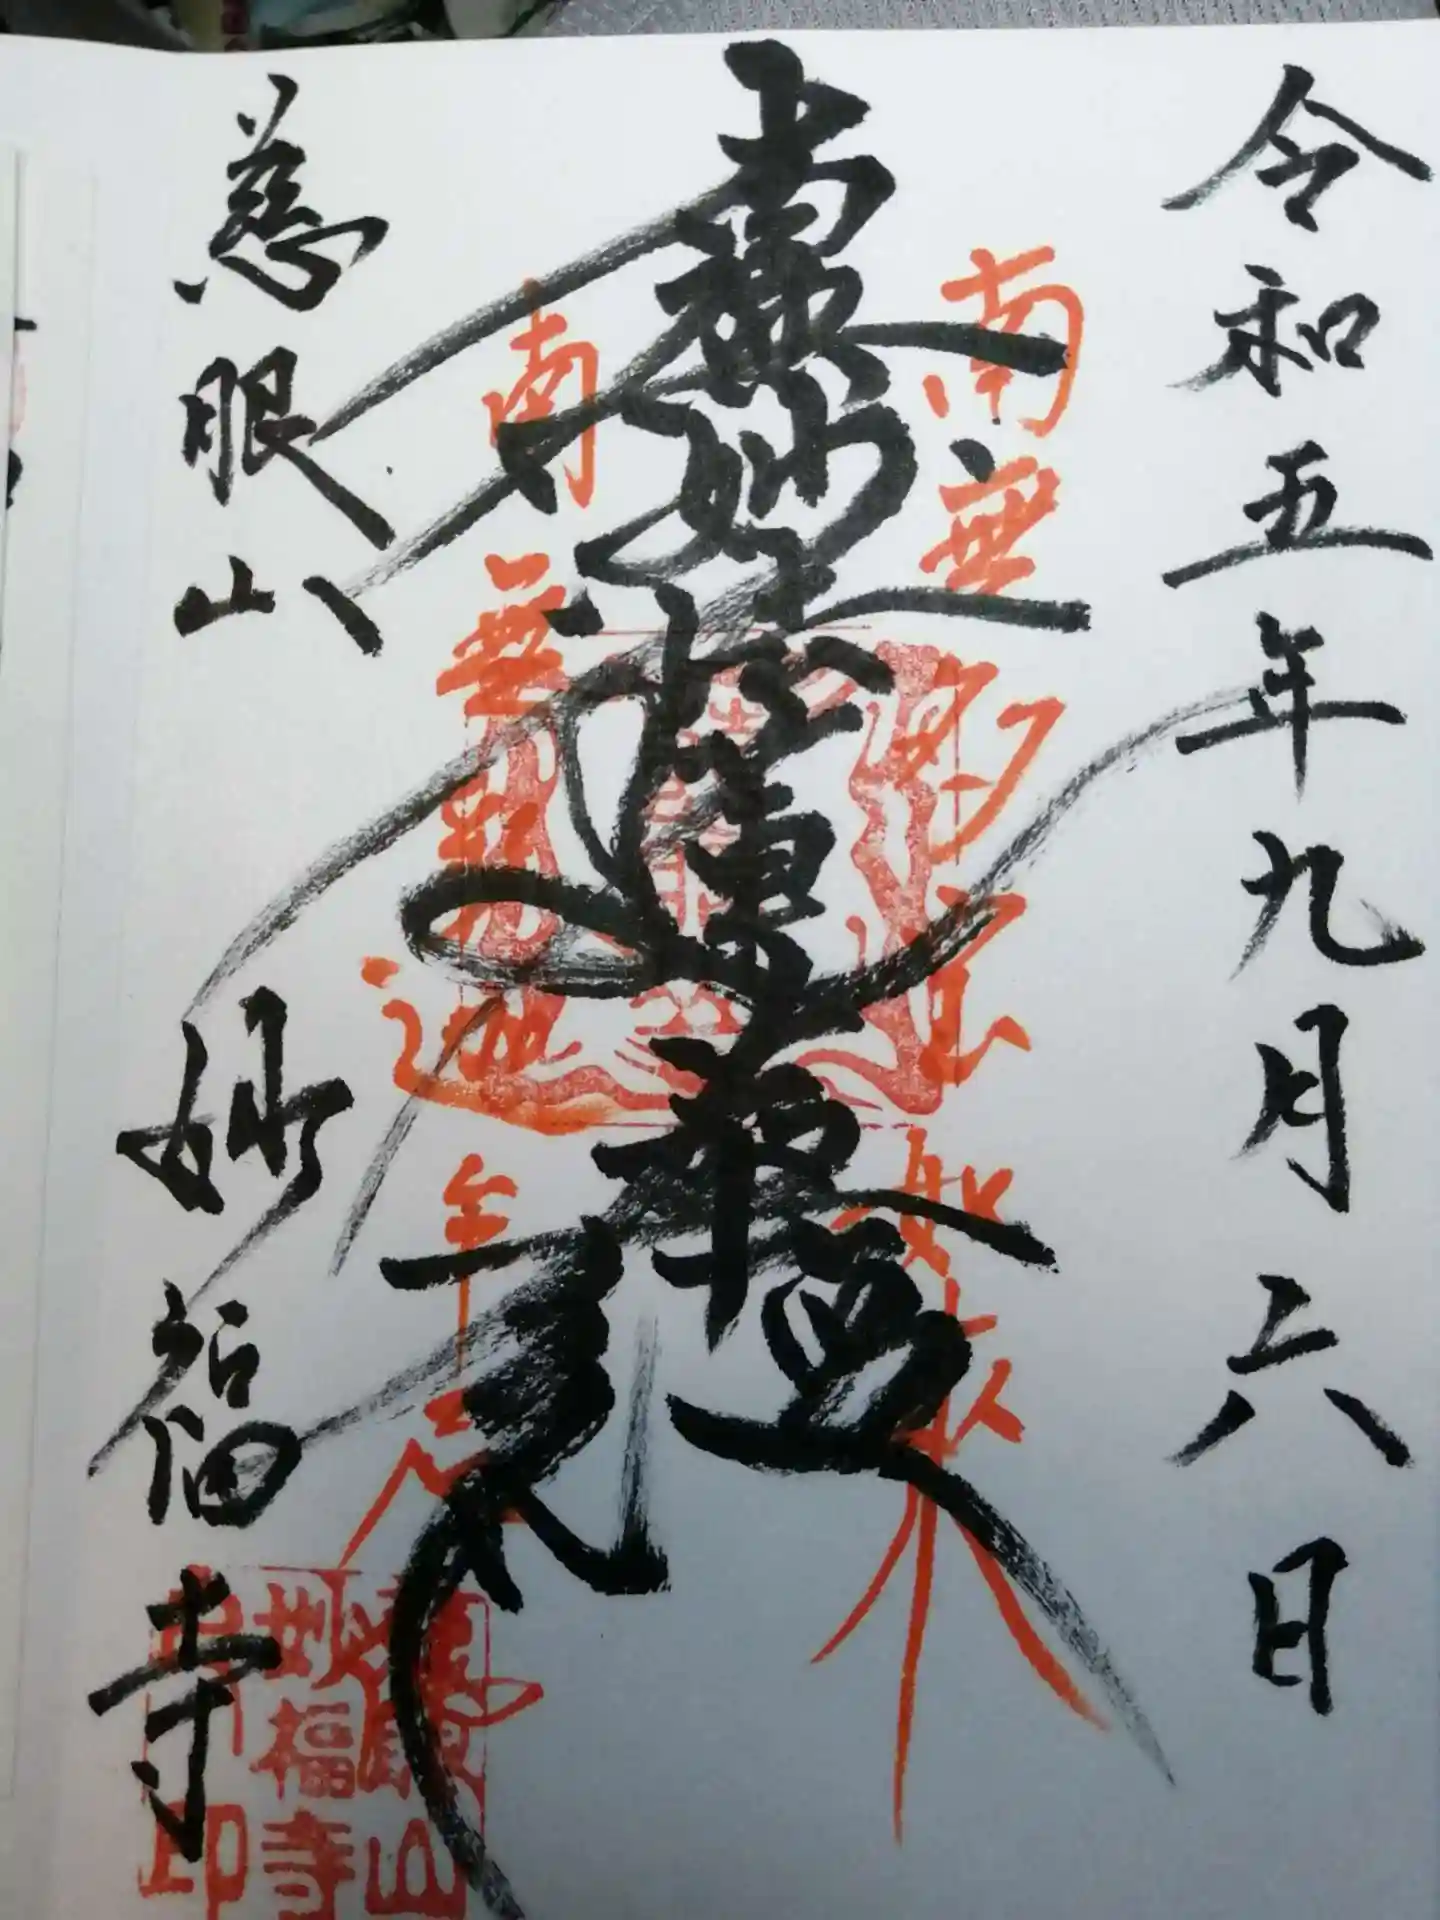 令和五年九月六日
南無多宝如来
南無妙法蓮華経
南無釈迦牟尼
慈眼山
妙福寺
慈眼山
妙福寺
印